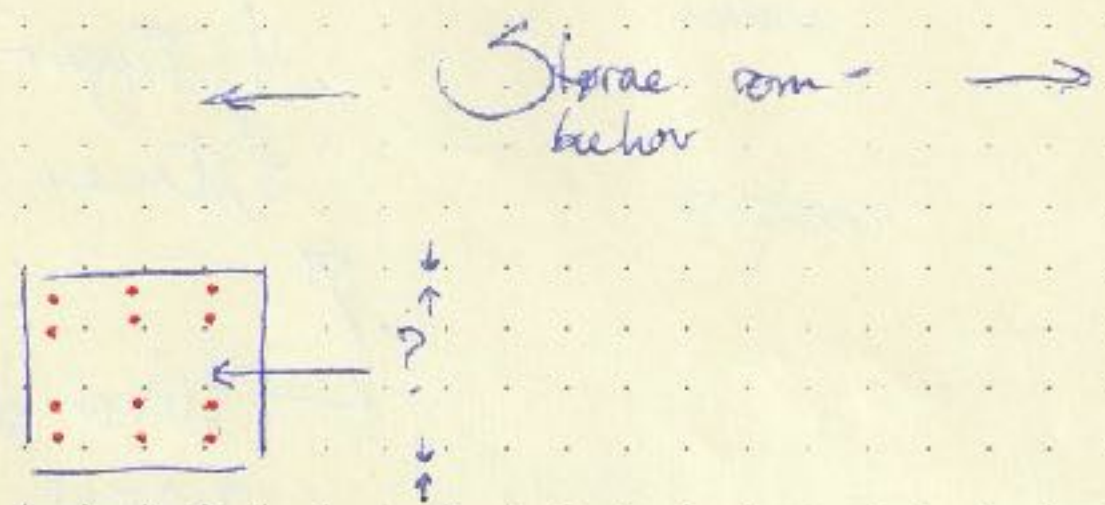 Større rom-
behov
?